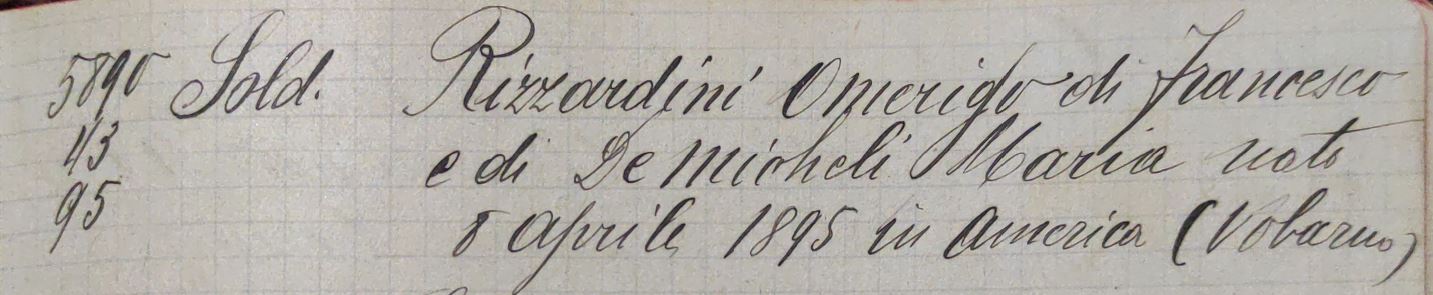 5890 Sold. Rizzardini Omerigo di Francesco
43 e di De Micheli Maria nato
95 8 Aprile 1895 in America (Vobarno)